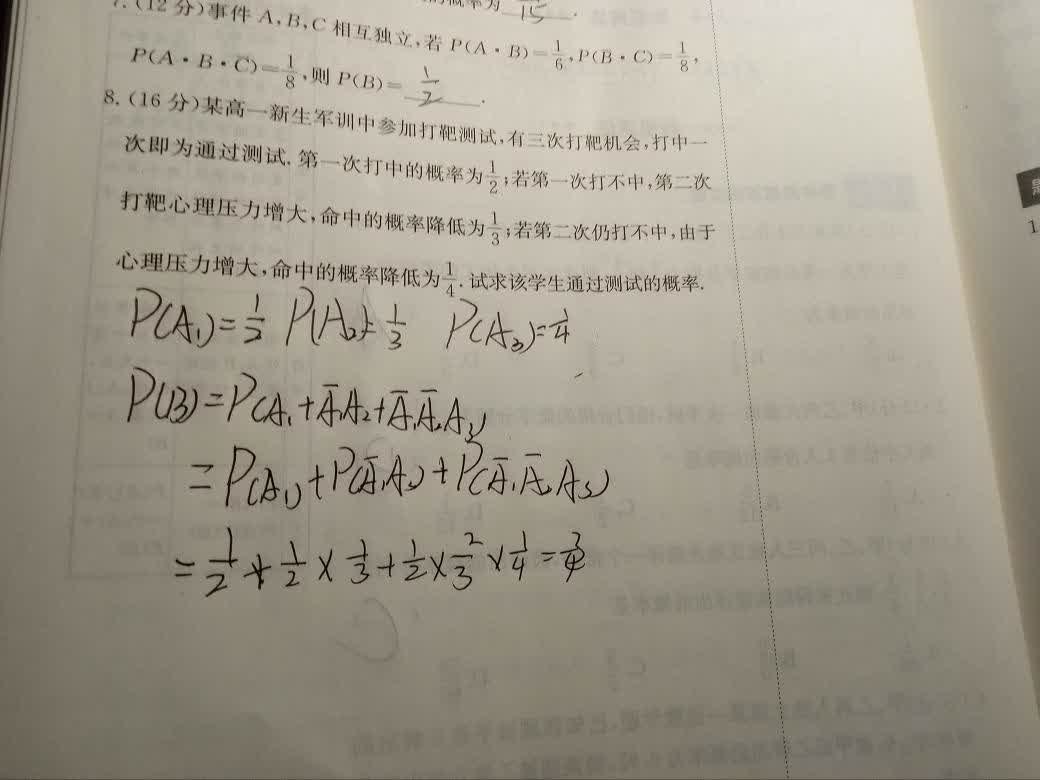 概率为 15 .
7. (12 分)事件 A,B,C 相互独立,若 P(A·B)=1/6,P(B·C)=1/8,
P(A·B·C)=1/8,则 P(B)= 1/2 .
8. (16 分)某高一新生军训中参加打靶测试,有三次打靶机会,打中一
次即为通过测试. 第一次打中的概率为1/2;若第一次打不中,第二次
打靶心理压力增大,命中的概率降低为1/3;若第二次仍打不中,由于
心理压力增大,命中的概率降低为1/4. 试求该学生通过测试的概率.
P(A₁)=1/2 P(A₂)=1/3 P(A₃)=1/4
P(B)=P(A₁+Ā₁A₂+Ā₁Ā₂A₃)
=P(A₁)+P(Ā₁A₂)+P(Ā₁Ā₂A₃)
=1/2+1/2×1/3+1/2×2/3×1/4=3/4